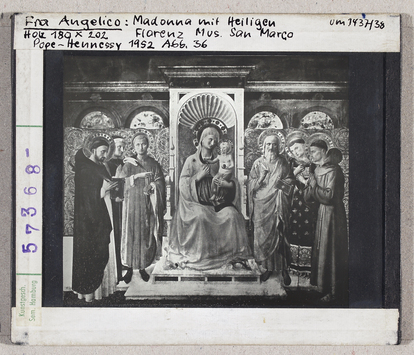 Fra Angelico: Madonna mit Heiligen um 1437/38
Holz 189 x 202 Florenz Mus. San Marco
Pope-Hennessy 1952 Abb. 36
57368-
Kunstgesch.
Sem. Hamburg